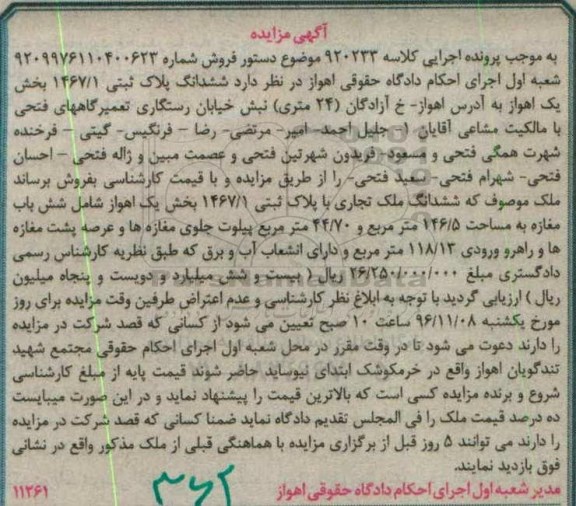 آگهی مزایده
به موجب پرونده اجرایی کلاسه ۹۲۰۲۳۳ موضوع دستور فروش شماره ۹۲۰۹۹۷۶۱۱۰۴۰۰۶۲۳
شعبه اول اجرای احکام دادگاه حقوقی اهواز در نظر دارد ششدانگ پلاک ثبتی ۱۴۶۷/۱ بخش
یک اهواز به آدرس اهواز- خ آزادگان (۲۴ متری) نبش خیابان رستگاری تعمیرگاههای فتحی
با مالکیت مشاعی آقایان ۱- جلیل احمد- امیر- مرتضی- رضا – فرنگیس- گیتی – فرخنده
شهرت همگی فتحی و مسعود- فریدون شهرتین فتحی و عصمت مبین و ژاله فتحی – احسان
فتحی- شهرام فتحی- سعید فتحی- را از طریق مزایده و با قیمت کارشناسی بفروش برساند
ملک موصوف که ششدانگ ملک تجاری با پلاک ثبتی ۱۴۶۷/۱ بخش یک اهواز شامل شش باب
مغازه به مساحت ۱۴۶/۵ متر مربع و ۴۴/۷۰ متر مربع پیلوت جلوی مغازه ها و عرصه پشت مغازه
ها و راهرو ورودی ۱۱۸/۱۳ متر مربع و دارای انشعاب آب و برق که طبق نظریه کارشناس رسمی
دادگستری مبلغ ۲۶/۲۵۰/۰۰۰/۰۰۰ ریال ( بیست و شش میلیارد و دویست و پنجاه میلیون
ریال ) ارزیابی گردید با توجه به ابلاغ نظر کارشناسی و عدم اعتراض طرفین وقت مزایده برای روز
مورخ یکشنبه ۹۶/۱۱/۰۸ ساعت ۱۰ صبح تعیین می شود از کسانی که قصد شرکت در مزایده
را دارند دعوت می شود تا در وقت مقرر در محل شعبه اول اجرای احکام حقوقی مجتمع شهید
تندگویان اهواز واقع در خرمکوشک ابتدای نیوساید حاضر شوند قیمت پایه از مبلغ کارشناسی
شروع و برنده مزایده کسی است که بالاترین قیمت را پیشنهاد نماید و در این صورت میبایست
ده درصد قیمت ملک را فی المجلس تقدیم دادگاه نماید ضمنا کسانی که قصد شرکت در مزایده
را دارند می توانند ۵ روز قبل از برگزاری مزایده با هماهنگی قبلی از ملک مذکور واقع در نشانی
فوق بازدید نمایند.
مدیر شعبه اول اجرای احکام دادگاه حقوقی اهواز ۱۱۲۶۱